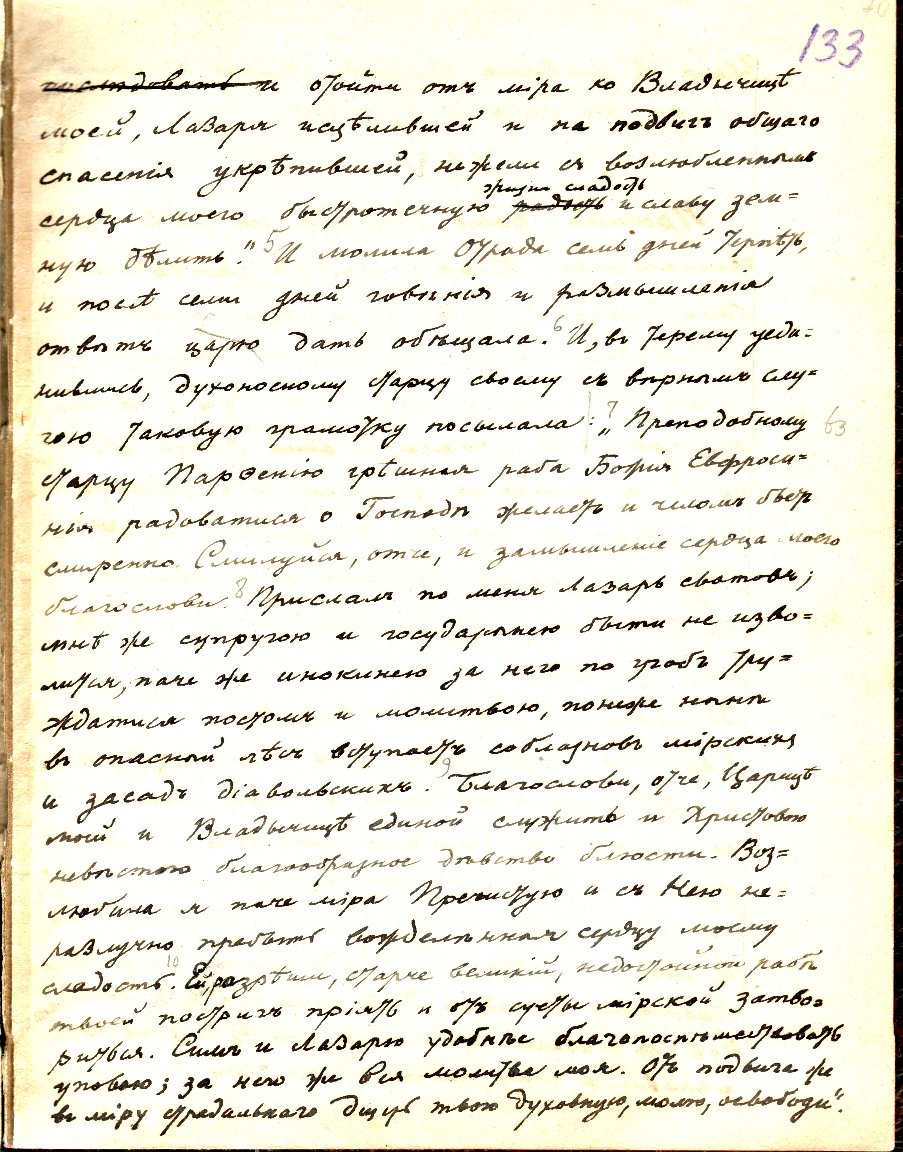 133
послѣдовать и отойти отъ міра ко Владычицѣ
моей, Лазаря исцѣлившей и на подвигъ общаго
спасенія укрѣпившей, нежели съ возлюбленнымъ
жизни сладость
сердца моего быстротечную радость и славу зем=
ную дѣлить." 5 И молила Отрада семь дней терпѣть,
и послѣ семи дней говѣнія и размышленія
отвѣтъ царю дать обѣщала. 6 И, въ терему уеди=
нившись, духоносному старцу своему съ вѣрнымъ слу=
гою таковую грамотку посылала: 7 „Преподобному 63
старцу Парѳенію грѣшная раба Божія Евфроси=
нія радоватися о Господѣ желаетъ и челомъ бьетъ
смиренно. Смилуйся, отче, и замышленіе сердца моего
благослови. 8 Прислалъ по меня Лазарь сватовъ;
мнѣ же супругою и государынею быти не изво=
лится, паче же инокинею за него по гробъ тру=
ждатися постомъ и молитвою, понеже нынѣ
въ опасный лѣсъ вступаетъ соблазновъ мірскихъ
и засадъ діавольскихъ. 9 Благослови, отче, Царицѣ
моей и Владычицѣ единой служить и Христовою
невѣстою благообразное дѣвство блюсти. Воз=
любила я паче міра Пречистую и съ Нею не=
разлучно пребыть вожделѣнная сердцу моему
сладость. 10 Ей, разрѣши, старче великій, недостойной рабѣ
твоей постригъ пріять и отъ суеты мірской затво=
риться. Симъ и Лазарю удобнѣе благопоспѣшествовать
уповаю; за него же вся молитва моя. Отъ подвига же
въ міру страдальнаго дщерь твою духовную, молю, освободи".